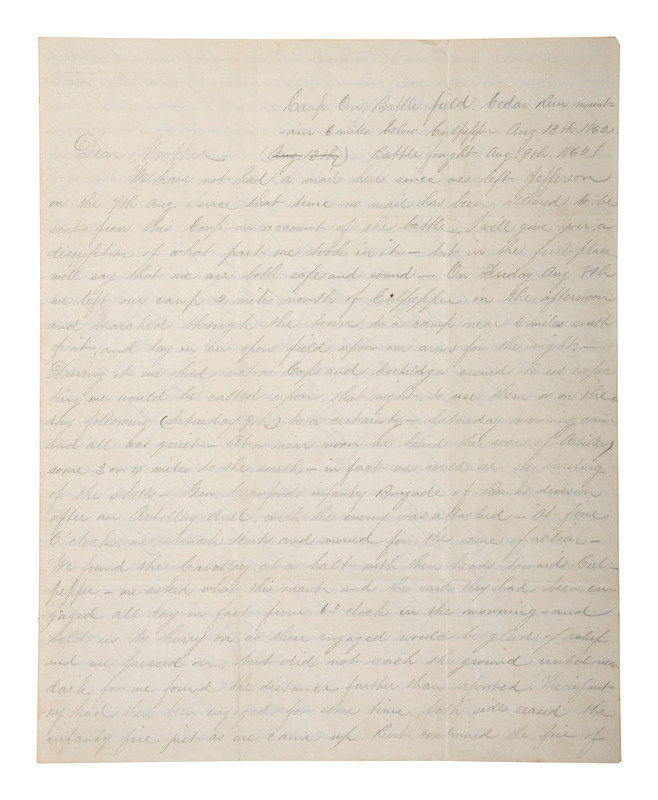 Camp On Battle field. Cedar Run mount-
-ain 6 miles below Culpepper Aug 13th 1862.
Dear Mother (Aug. 13th) Battle fought Aug. 9th. 1862
We have not had a mail here since we left Jefferson
on the 7th Aug. since that time no mail has been allowed to be
sent from this Corp. on account of the battle. I will give you a
discription of what part we took in it – but in the first place
will say that we are both safe and sound – On Friday Aug 8th
we left our camp 2 miles north of Culpepper in the afternoon
and marched through the town to a camp near 3 miles south
of it, and lay in an open field upon our arms for the night. –
During it we had extra Caps and Cartridges issued to us expec
ting we would be called upon that night to use them or on the
day following (Saturday 9th) to a certainty – Saturday morning came
and all was quiet – At or near noon we heard the roar of Artillery
some 3 or 4 miles to the south – in fact we could see the bursting
of the shells – Gen. Crawfords infantry Brigade of Banks division
after an Artillery duel, with the enemy was attacked – At five
O'clock, we struck tents and moved for the scene of action –
We found the Cavalley at a halt with their heads towards Cul-
pepper – we asked what this meant, and the said they had been en-
gaged all day in fact from 6 o'clock in the morning – and
told us to hurry on as those engaged would be glad of relief
and we pressed on, but did not reach the ground until near
dark for we found the distance further than reported. The infant-
ry had then been engaged for some time, both sides ceased the
infantry fire just as we came up. But continued the fire of